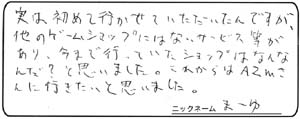 実は初めて行かせていただいたんですが、
他のゲームショップにはないサービス等が
あり、今まで行っていたショップはなんな
んだ?と思いました。これからはA2mさ
んに行きたいと思いました。
ニックネーム まーゆ